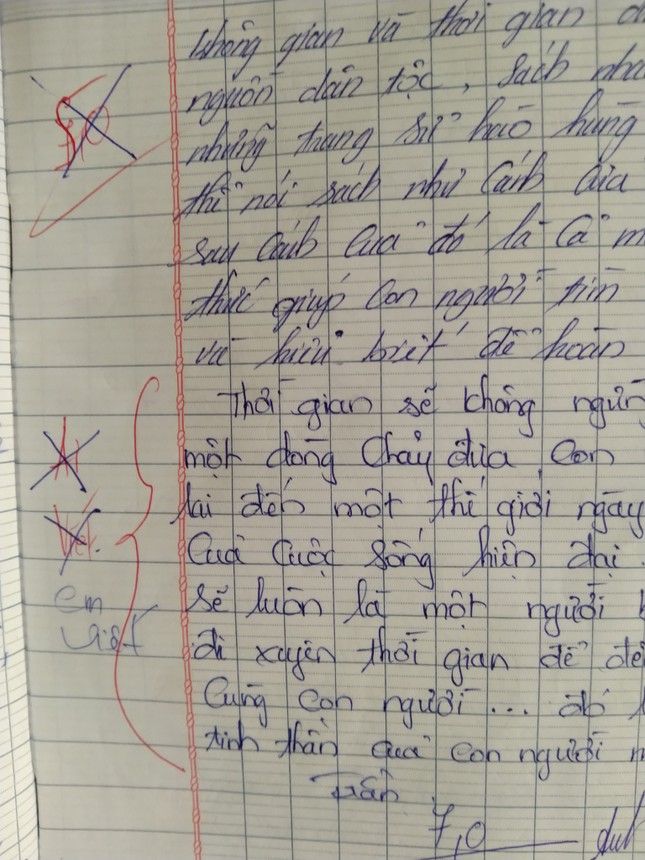 không gian và thời gian
nguồn dân tộc, sách
những trang sử hào hùng
thì nói sách như cánh cửa
sau cánh cửa đó là cả
thức giúp con người tìm
và hiểu biết để hoàn
Thời gian sẽ không
một dòng chảy đưa con
lại đến một thế giới ngày
Của cuộc sống hiện đại
sẽ luôn là một người
đi xuyên thời gian để
Cùng con người ... đó
tinh thần của con người
Ai
viết.
em
viết
Trần
7,0